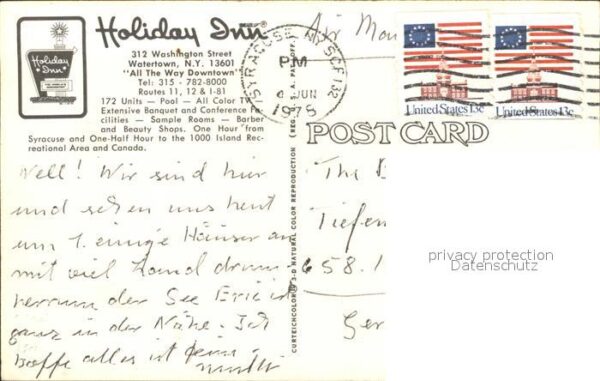 Holiday Inn®
312 Washington Street
Watertown, N.Y. 13601
"All The Way Downtown"
Tel: 315 - 782-8000
Routes 11, 12 & 1-81
172 Units — Pool — All Color T
Extensive Banquet and Conference Fa-
cilities — Sample Rooms — Barber
and Beauty Shops. One Hour from
Syracuse and One-Half Hour to the 1000 Island Rec-
reational Area and Canada.
Holiday
Inn
SYRACUSE, NY SCF 132
PM
JUN
1978
Air
United States 13c
United States 13c
POST CARD
CURTEICHCOLOR® 3-D NATURAL COLOR REPRODUCTION (REG. U.S.A. PAT. OFF.)
Well! Wir sind hier
und sehen uns heut
um 1. einige Häuser an
mit viel Land drum
herrum der See Erie is
ganz in der Nähe. Ich
hoffe alles ist
The
Tiefen
658.1
Ger
privacy protection
Datenschutz